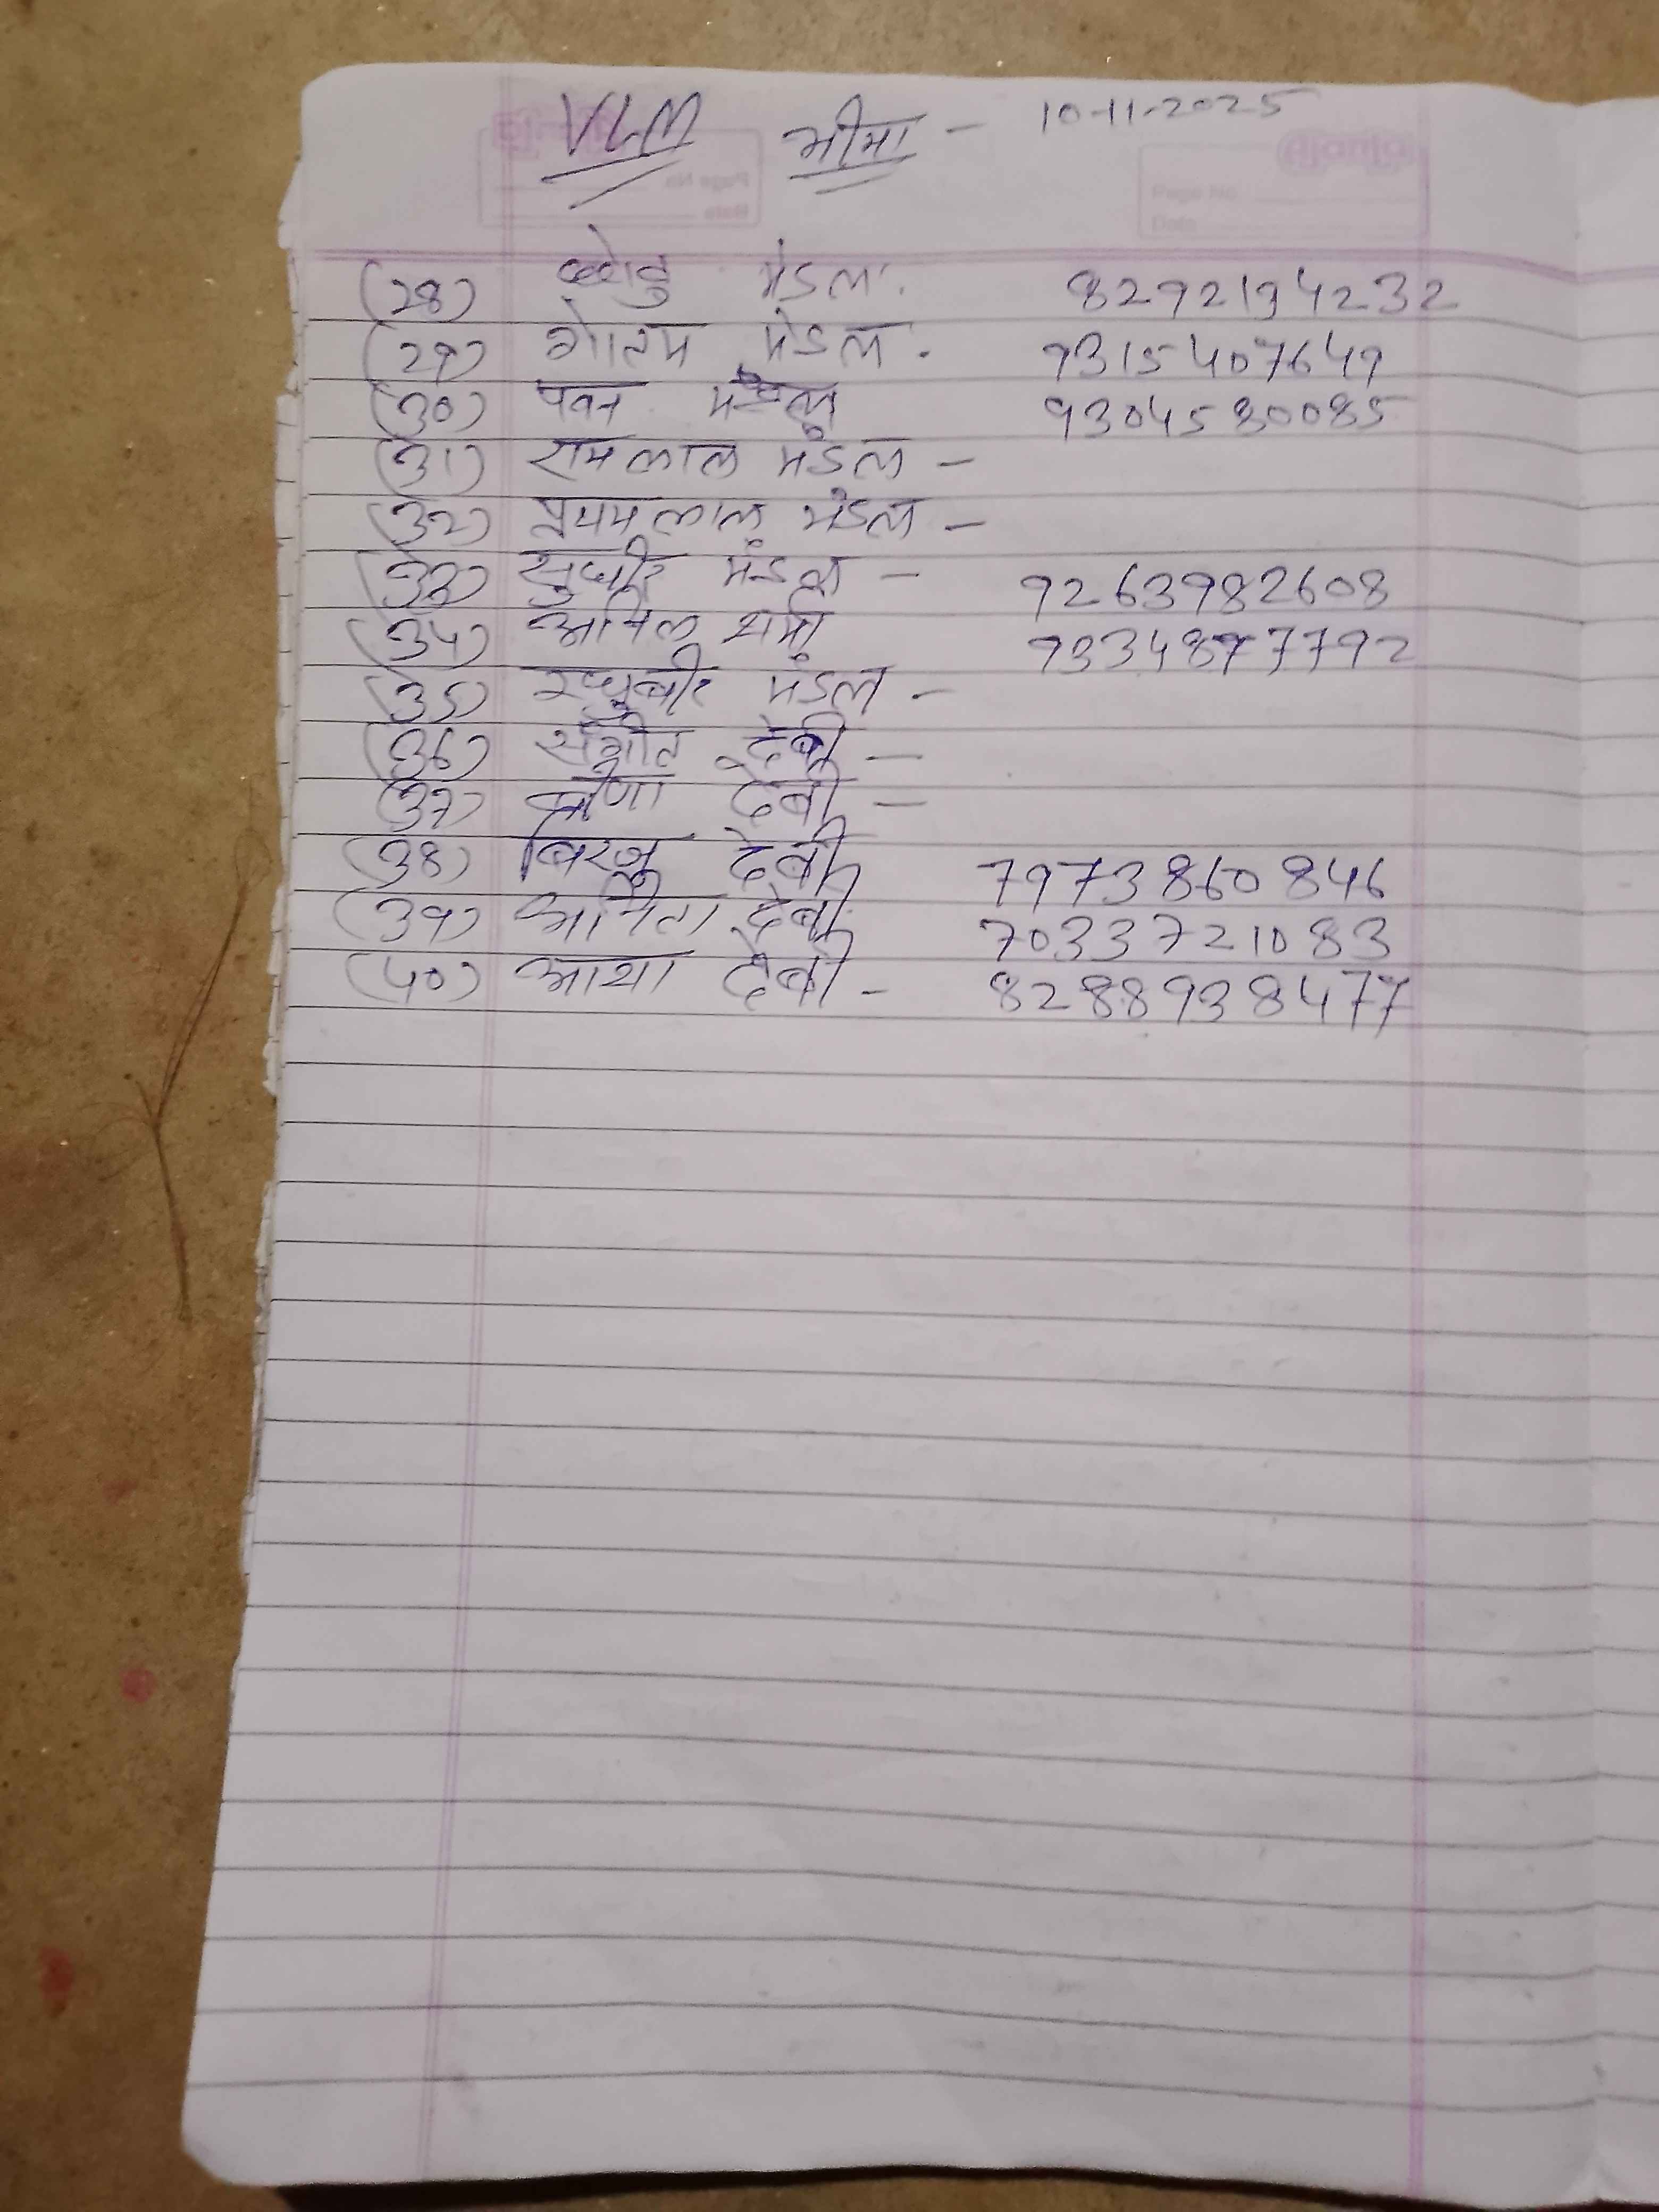 VLM भीमा - 10-11-2025
Ajanta
Page No
Date
(28) मंडल. 8292194232
(29) गोतम मंडल. 9315407649
(30) पवन मंडल 9304580085
(31) रामलाल मंडल -
(32) मंडल -
(33) सुधीर मंडल - 9263982608
(34) अनिल शर्मा
(35) रघुबीर मंडल -
(36) संगीत देबी -
(37) देबी -
(38) बिरजु देबी 7973860846
(39) अनिता देबी 7033721083
(40) आशा देबी - 8288938477